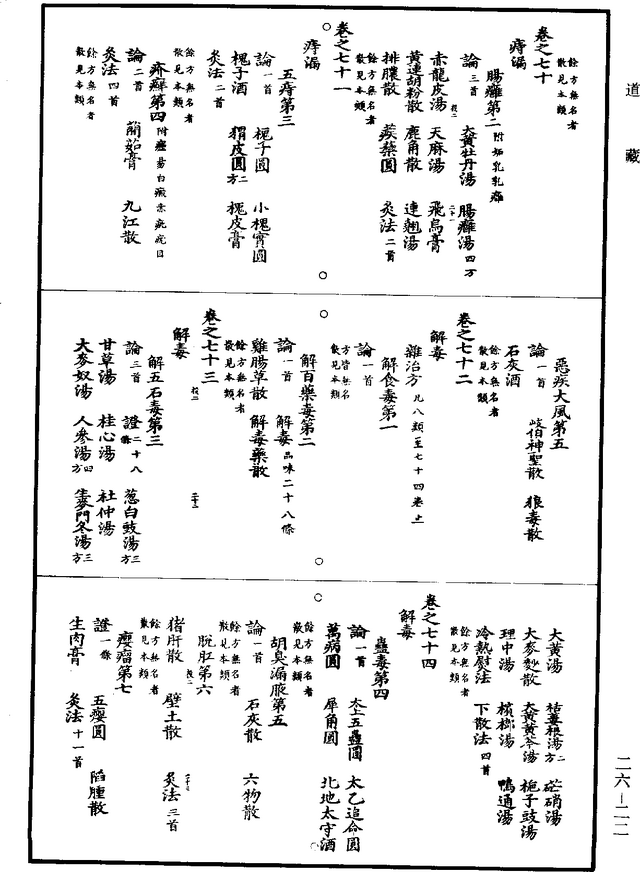 道藏
卷之七十
餘方無名者
散見本類
痔漏
腸癰第二 附妬乳乳癰
論 三首 大黃牡丹湯 腸癰湯 四方
赤龍皮湯 天麻湯 飛烏膏
黃連胡粉散 鹿角散 連翹湯
排膿散 蒺藜圓 灸法 二首
餘方無名者
散見本類
卷之七十一
痔漏
五痔第三
論 一首 槐子圓 小槐實圓
槐子酒 猬皮圓 二方 槐皮膏
灸法 二首
餘方無名者
散見本類
疥癬第四 附癧易白癜赤疵疣目
論 二首 䕡茹膏 九江散
灸法 四首
餘方無名者
散見本類
惡疾大風第五
論 一首 岐伯神聖散 狼毒散
石灰酒
餘方無名者
散見本類
卷之七十二
解毒
雜治方 凡八類一至七十四卷止
解食毒第一
論 一首
方皆無名
散見本類
解百藥毒第二
論 一首 解毒 品味二十八條
雞腸草散 解毒藥散
餘方無名者
散見本類
卷之七十三
解毒
解五石毒第三
論 三首 證 二十八條 葱白豉湯 三方
甘草湯 桂心湯 杜仲湯
大麥奴湯 人參湯 四方 生麥門冬湯 三方
大黃湯 栝蔞根湯 二方 芒硝湯
大麥麨散 大黃黃芩湯 梔子豉湯
理中湯 檳榔湯 鴨通湯
冷熱熨法 下散法 四首
餘方無名者
散見本類
卷之七十四
解毒
蠱毒第四
論 一首 太上五蠱圓 太乙追命圓
萬病圓 犀角圓 北地太守酒
餘方無名者
散見本類
胡臭漏腋第五
論 一首 石灰散 六物散
餘方無名者
散見本類
脫肛第六
猪肝散 壁土散 灸法 三首
餘方無名者
散見本類
癭瘤第七
證 一條 五癭圓 陷腫散
生肉膏 灸法 十一首
二六—二二